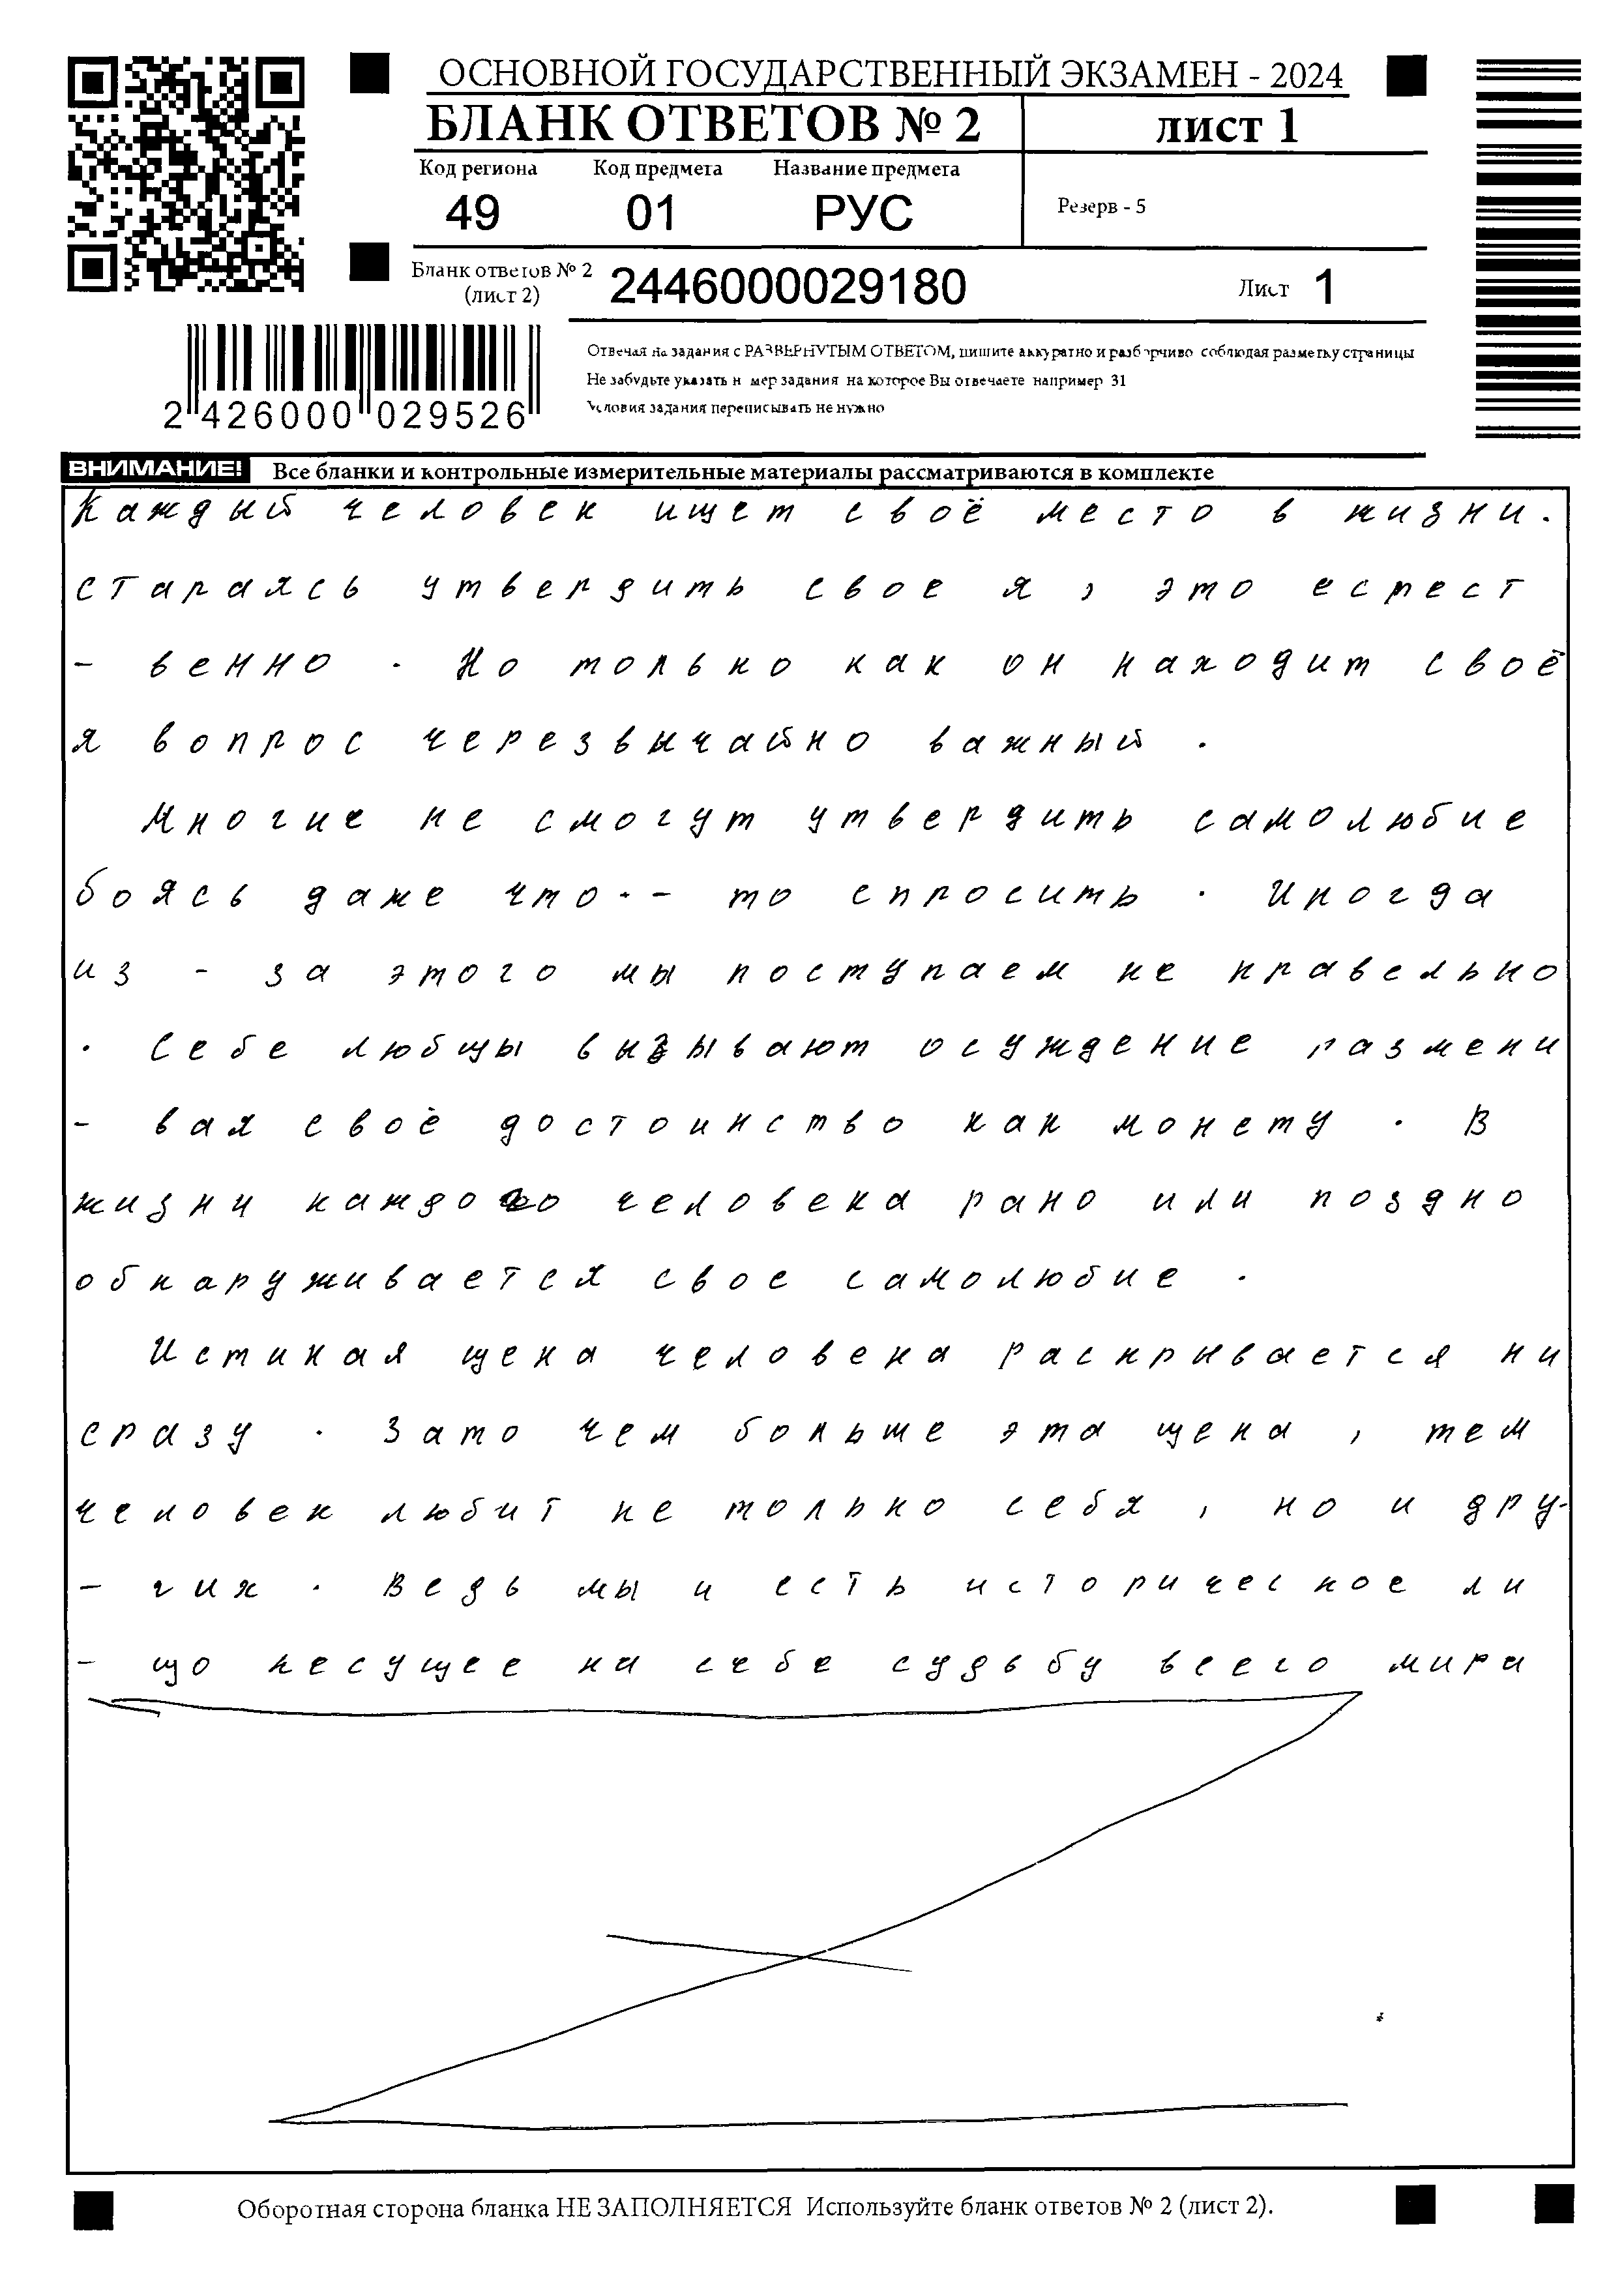 ОСНОВНОЙ ГОСУДАРСТВЕННЫЙ ЭКЗАМЕН - 2024
БЛАНК ОТВЕТОВ № 2
лист 1
Код региона Код предмета Название предмета
49 01 РУС
Резерв - 5
Бланк ответов № 2
(лист 2)
2446000029180
Лист 1
2 426000 029526
Отвечая на задания с РАЗВЕРНУТЫМ ОТВЕТОМ, пишите аккуратно и разборчиво соблюдая разметку страницы
Не забудьте указать номер задания на которое Вы отвечаете например 31
Условия задания переписывать не нужно
ВНИМАНИЕ! Все бланки и контрольные измерительные материалы рассматриваются в комплекте
Каждый человек ищет своё место в жизни.
стараясь утвердить свое я, это естест
- венно. Но только как он находит своё
я вопрос черезвычайно важный.
Многие не смогут утвердить самолюбие
боясь даже что-- то спросить. Иногда
из - за этого мы поступаем не правельно
. Себе любцы вызывают осуждение размени
- вая своё достоинство как монету. В
жизни каждого человека рано или поздно
обнаруживается свое самолюбие.
Истиная цена человека раскрывается ни
сразу. Зато чем больше эта цена, тем
человек любит не только себя, но и дру-
- гих. Ведь мы и есть историческое ли
- цо несущее на себе судьбу всего мира
Оборотная сторона бланка НЕ ЗАПОЛНЯЕТСЯ Используйте бланк ответов № 2 (лист 2).